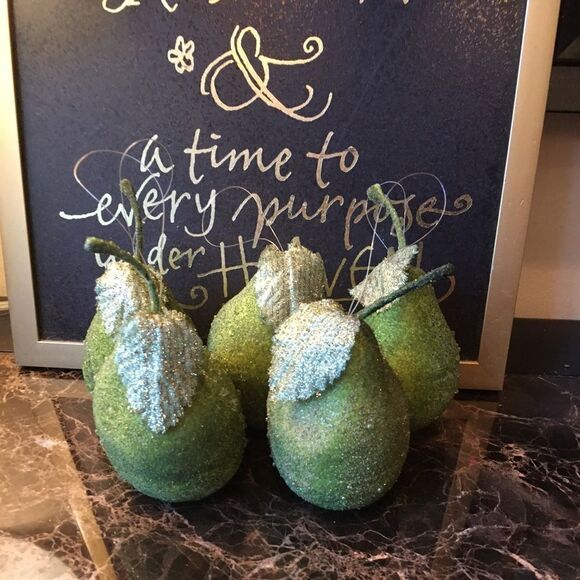 &
a time to
every purpose
under Heaven